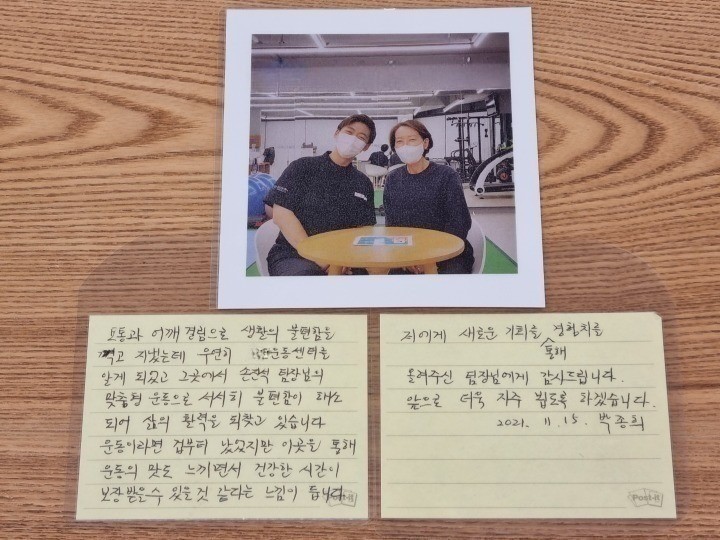 요통과 어깨 결림으로 생활의 불편함을
겪고 지냈는데 우연히 운동센터를
알게 되었고 그곳에서 손진석 팀장님의
맞춤형 운동으로 서서히 불편함이 해소
되어 삶의 활력을 되찾고 있습니다
운동이라면 겁부터 났었지만 이곳을 통해
운동의 맛도 느끼면서 건강한 시간이
보장받을수 있을것 같다는 느낌이 듭니다
Post-it
저에게 새로운 기회를 경험치를
통해
올려주신 팀장님에게 감사드립니다.
앞으로 더욱 자주 뵙도록 하겠습니다.
2021. 11. 15. 박종희
Post-it